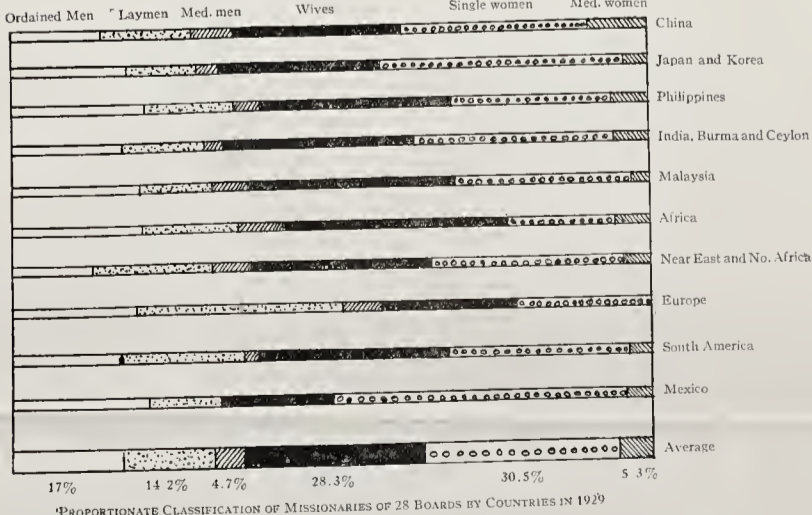 Ordained Men Laymen Med. men Wives Single women Med. women
China
Japan and Korea
Philippines
India, Burma and Ceylon
Malaysia
Africa
Near East and No. Africa
Europe
South America
Mexico
Average
17% 14 2% 4.7% 28.3% 30.5% 5 3%
PROPORTIONATE CLASSIFICATION OF MISSIONARIES OF 28 BOARDS BY COUNTRIES IN 1929